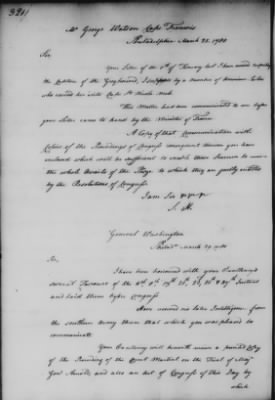 321
Mr George Watson Capt Francis
Philadelphia March 28. 1780
Sir
Your Letter of the 1st of Feb'ry last I have
the Capture of the Greyhound, by a number of American
who carried her into Cape St Nicola Mole
This Matter had been communicated to me before
your Letter came to hand by the Minister of France
A Copy of that Communication with
Copies of the Proceedings of Congress consequent thereon you have
enclosed which will be sufficient to enable these Persons to receive
the whole Amount of the Prize to which they are justly entitled
by the Resolutions of Congress
I am Sir &c &c &c
S. H.
General Washington
Philad'a March 29. 1780
Sir,
I have been honored with your Excellency's
several Favours of the 8th 17th 18th 23, 26 & 27th Instant
and laid them before Congress
Have received no later Intelligence from
the southern Army than that which you was pleased to
communicate
Your Excellency will herewith receive a printed Copy
of the Proceeding of the Court Martial on the Trial of Maj'r
Gen'l Arnold and also an Act of Congress of this Day by
which